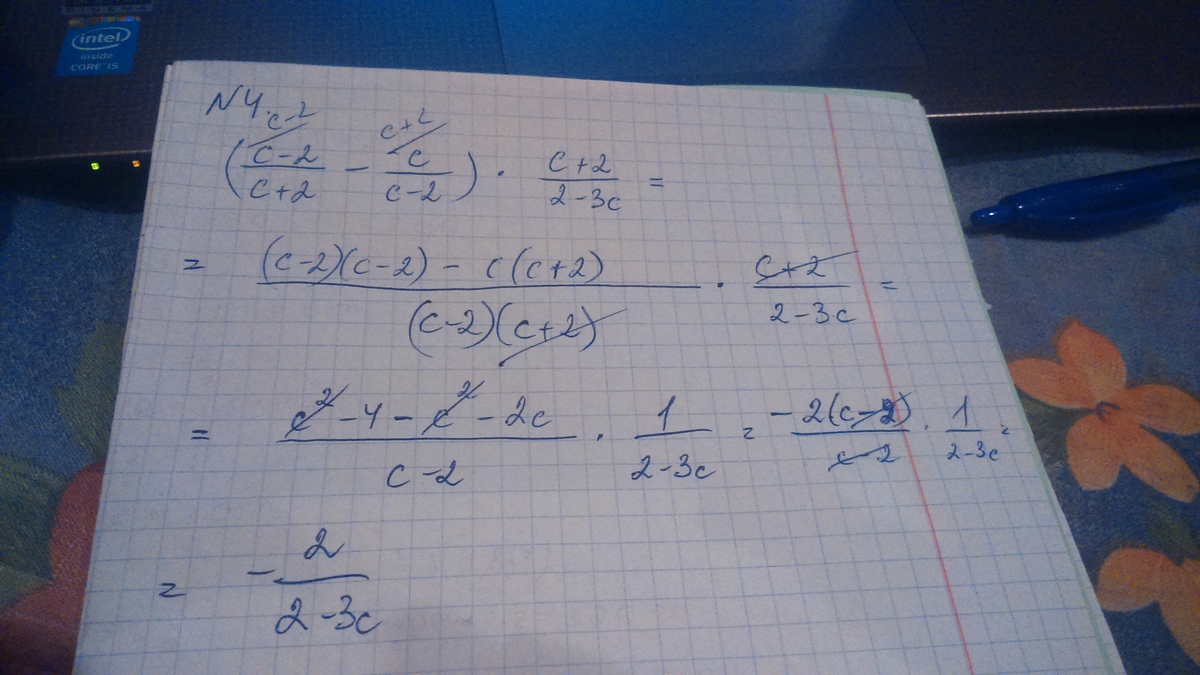 intel
inside
CORE i5
N4.
c-2 c+2
(c-2/c+2 - c/c-2) · c+2/2-3c =
= (c-2)(c-2) - c(c+2)/(c-2)(c+2) · c+2/2-3c =
= c²-4-c²-2c/c-2 · 1/2-3c = -2(c-2)/c-2 · 1/2-3c =
= -2/2-3c